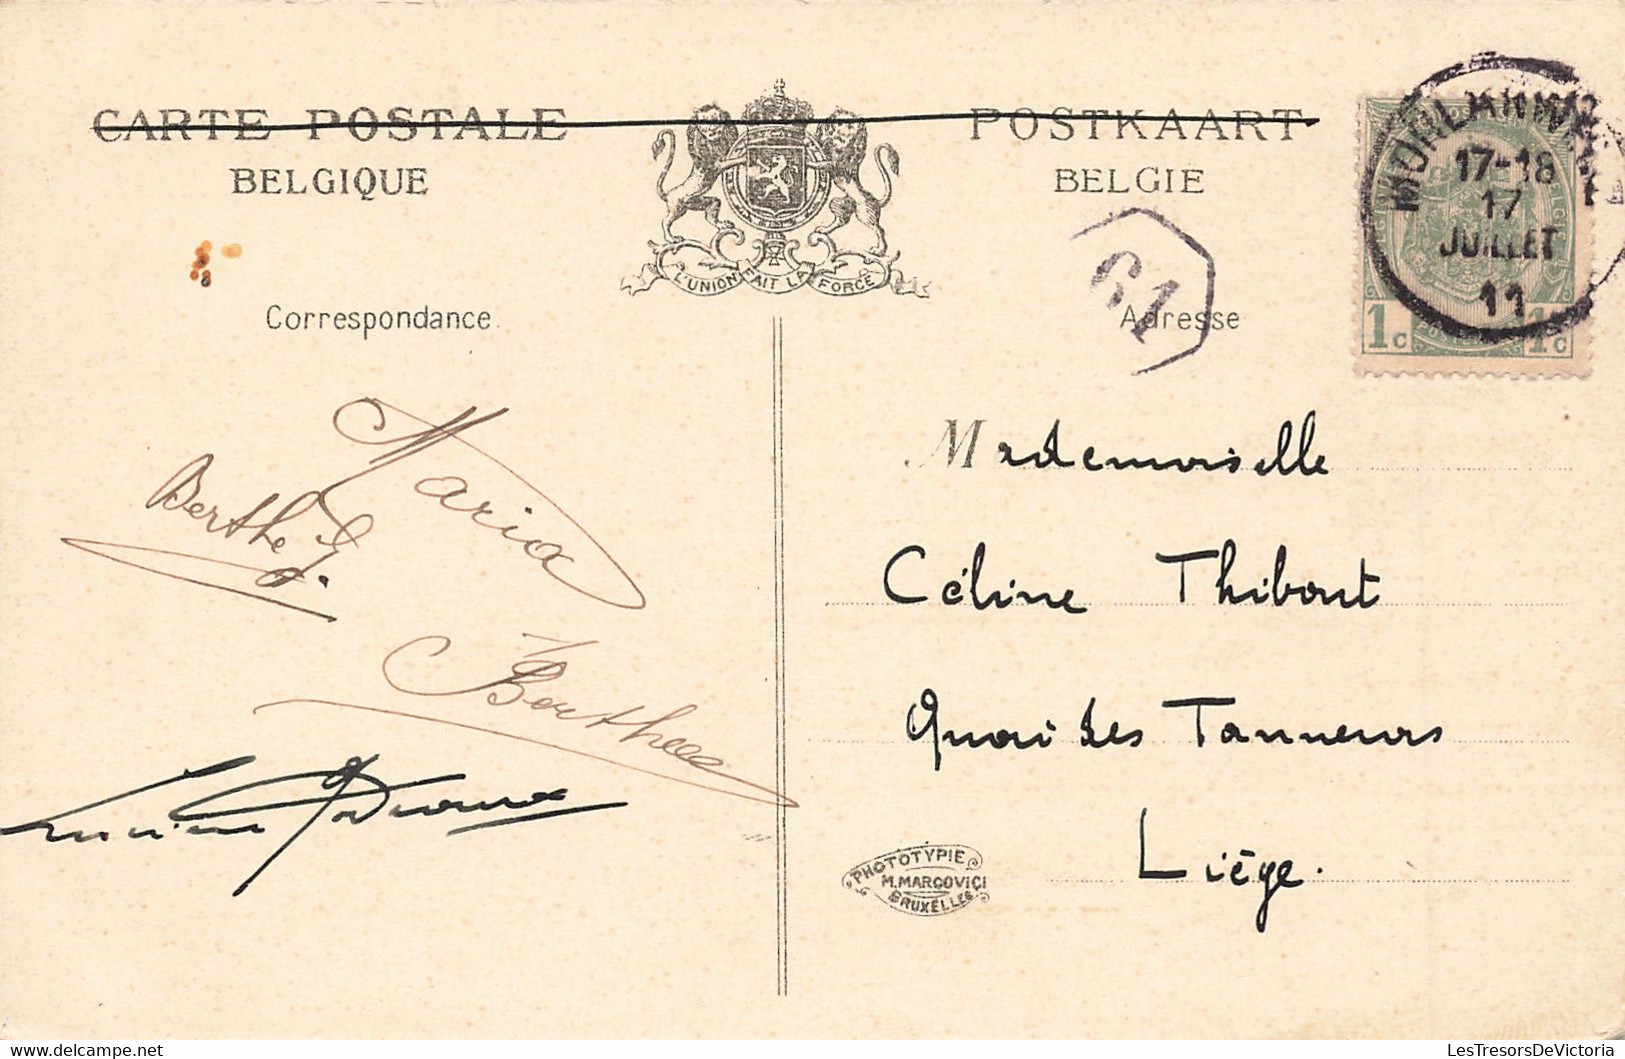 CARTE POSTALE
BELGIQUE
POSTKAART
BELGIE
L'UNION FAIT LA FORCE
MORLANWELZ
17-18
17
JUILLET
11
1c 1c
61
Correspondance.
Adresse
Maria
Berthe G.
Berthe
Mademoiselle
Céline Thibout
Quai des Tanneurs
Liége.
PHOTOTYPIE
M. MARCOVICI
BRUXELLES
LesTresorsDeVictoria